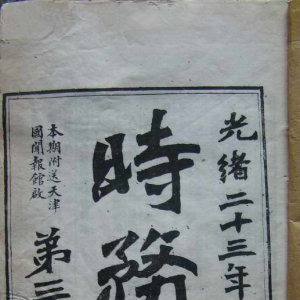 光緒二十三年
時務
第三
本期附送天津
國聞報館啟